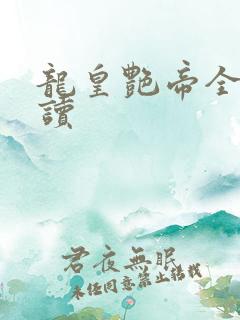 龍皇艷帝全
讀
君夜無眠
未經同意禁止轉載